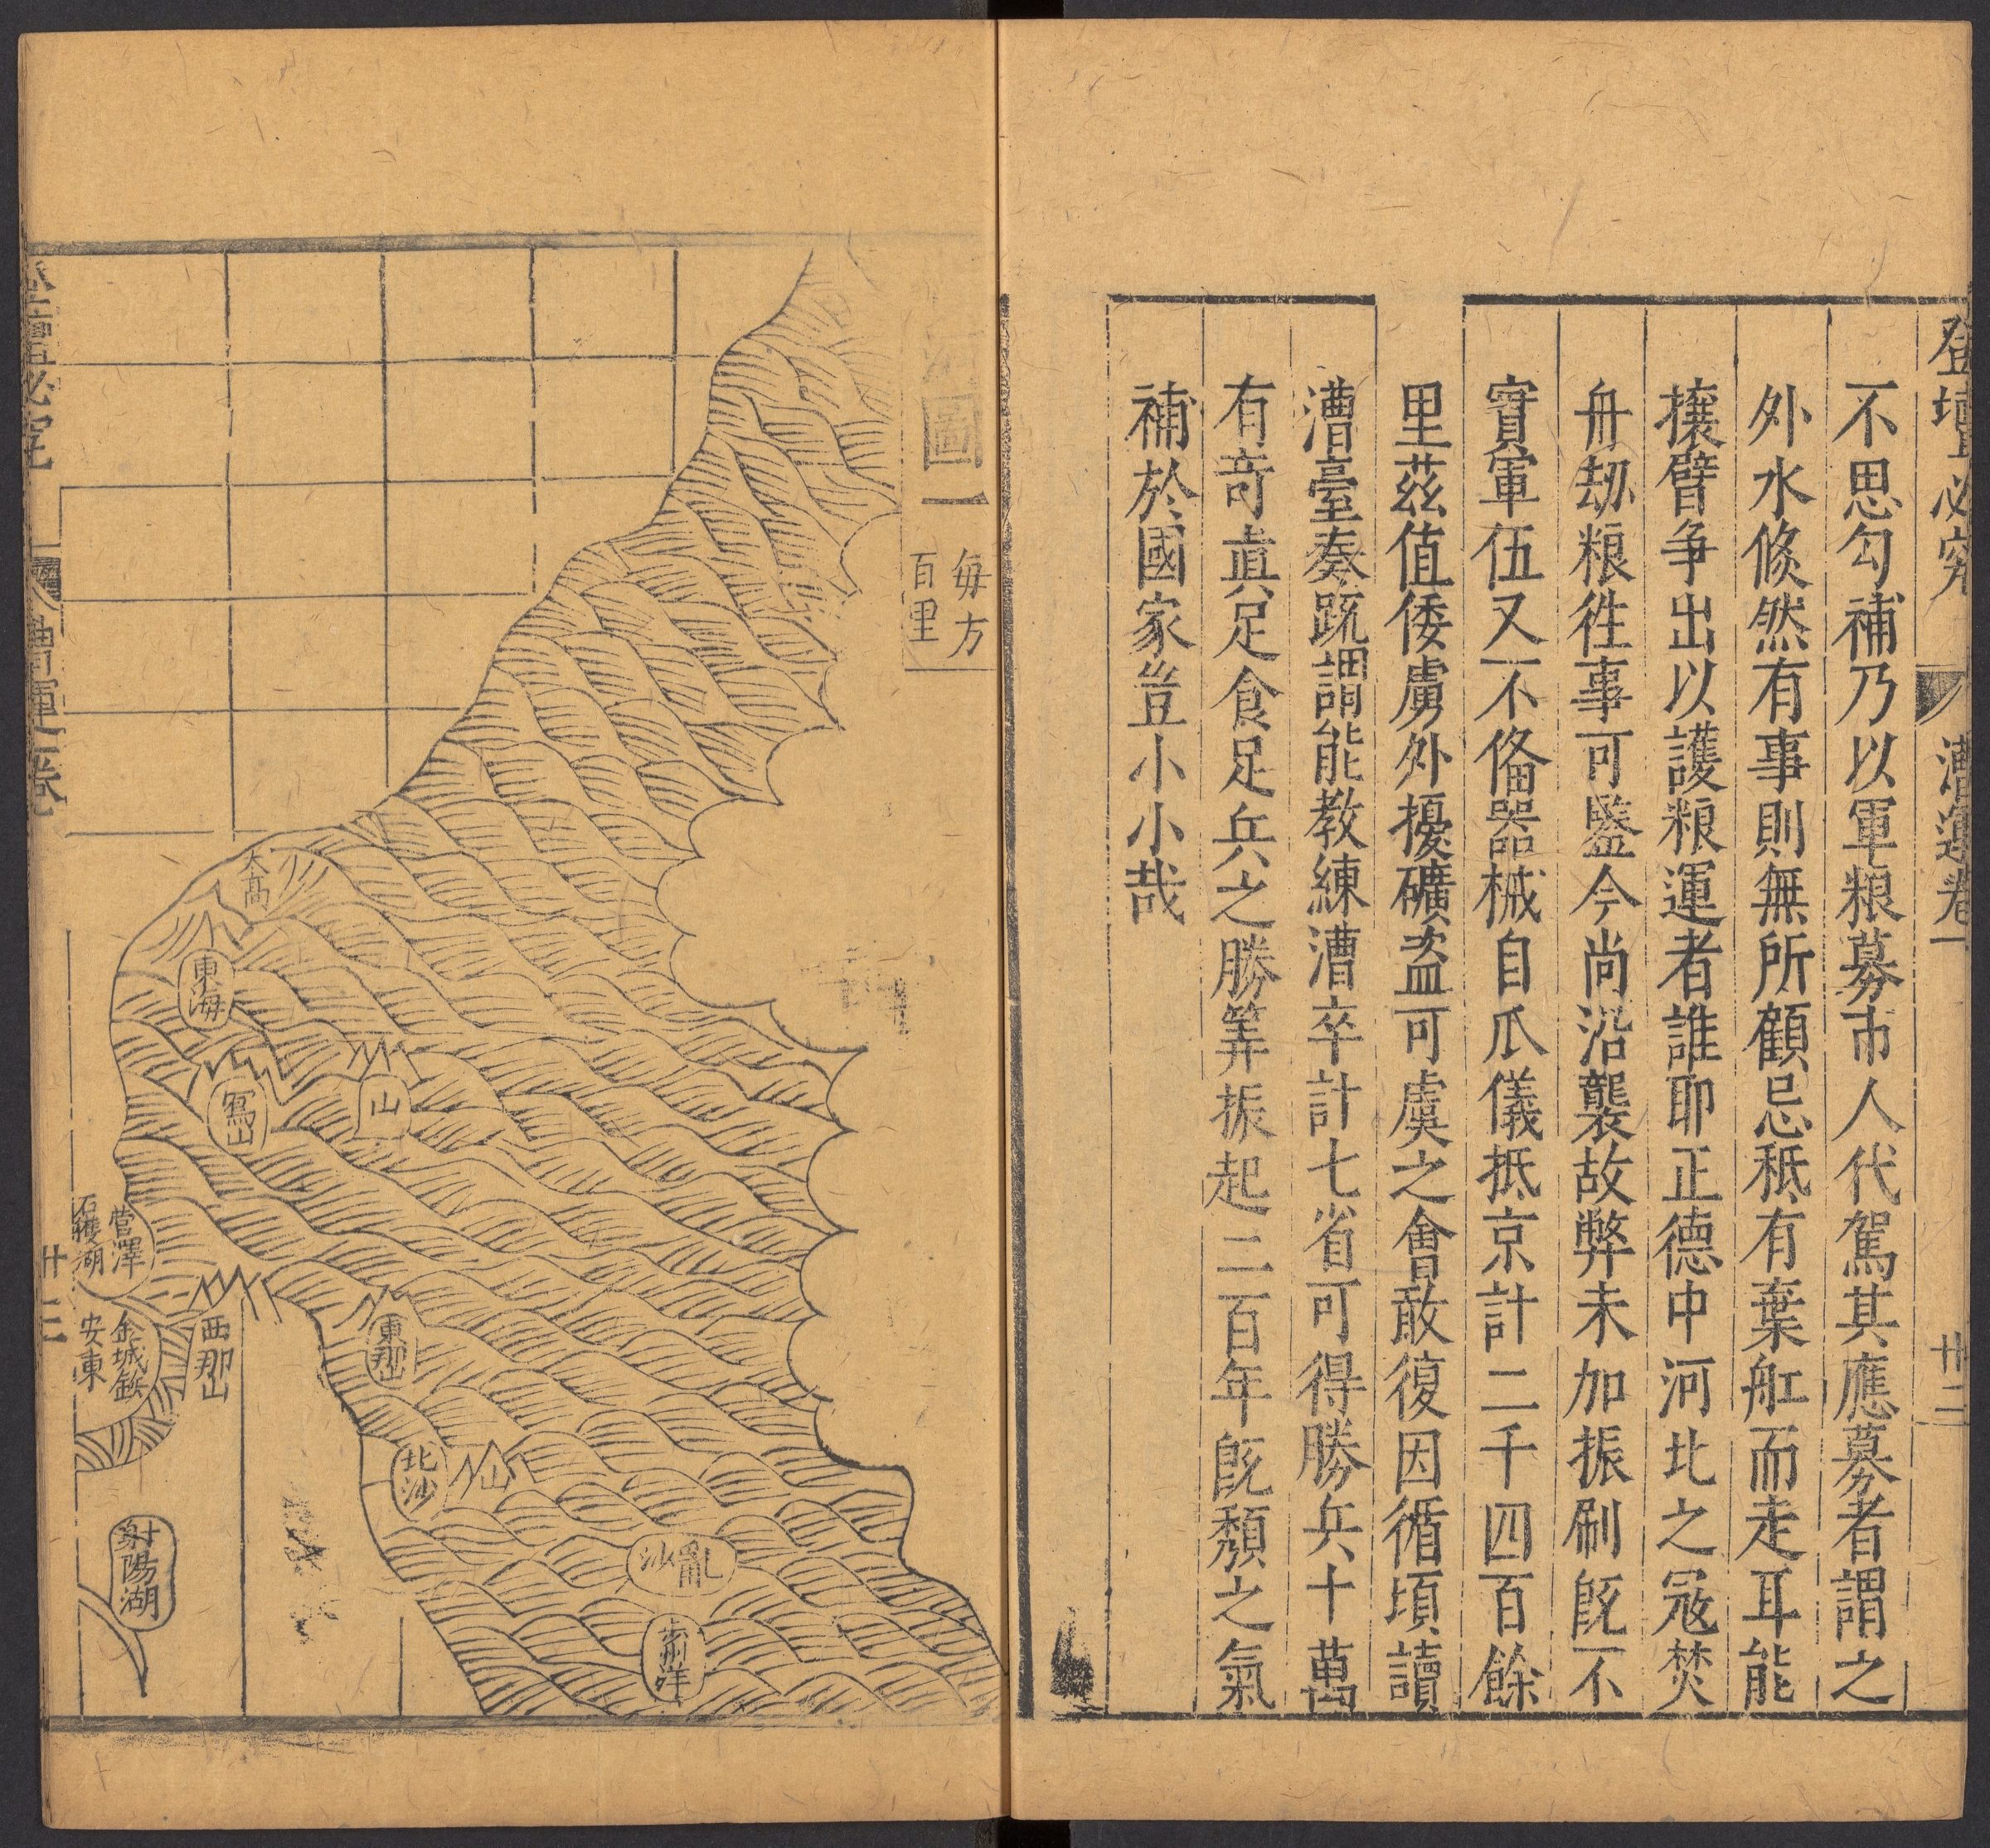 登壇必究 漕運卷一 廿二
不思勾補乃以軍粮募市人代駕其應募者謂之
外水倏然有事則無所顧忌秪有棄舡而走耳能
攘臂争出以護粮運者誰耶正德中河北之冦焚
舟刼粮徃事可鑒今尚沿襲故弊未加振刷旣不
實軍伍又不俻器械自瓜儀抵京計二千四百餘
里茲值倭虜外擾礦盗可虞之會敢復因循頃讀
漕臺奏疏謂能教練漕卒計七省可得勝兵十萬
有奇眞足食足兵之勝筭振起二百年旣頽之氣
補於國家豈小小哉
圖一
每方
百里
大高
東海
山
石㹳湖
安東
金城鎮
西那山
東那山
北沙
山
亂沙
射陽湖
必究 漕運卷 廿三